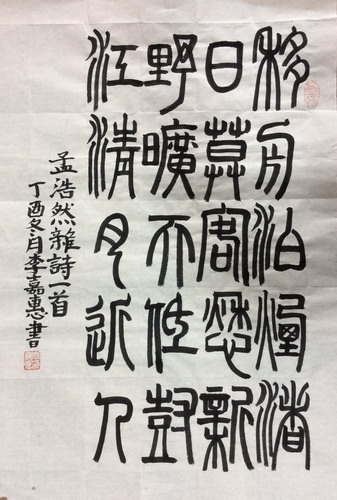 移舟泊煙渚
日暮客愁新
野曠天低樹
江清月近人
孟浩然雜詩一首
丁酉冬月李嘉惠書